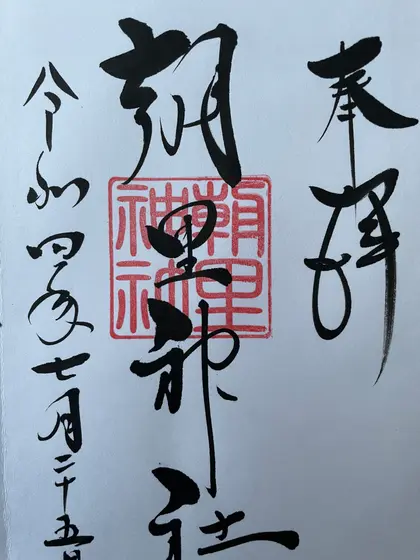 奉拝
朝里神社
朝里神社
令和四年七月二十五日